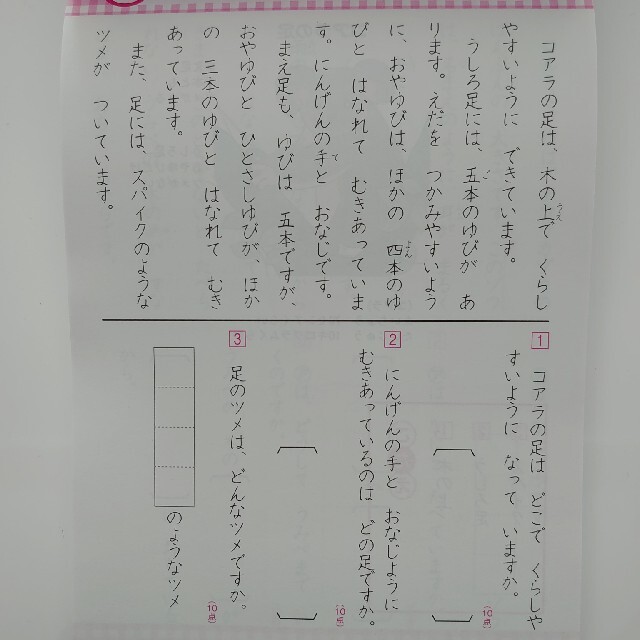 コアラの足は、木の上で くらし
やすいように できています。
うしろ足には、五本のゆびが あ
ります。えだを つかみやすいよう
に、おやゆびは、ほかの 四本のゆ
びと はなれて むきあっていま
す。にんげんの手と おなじです。
まえ足も、ゆびは 五本ですが、
おやゆびと ひとさしゆびが、ほか
の 三本のゆびと はなれて むき
あっています。
また、足には、スパイクのような
ツメが ついています。
1 コアラの足は どこで くらしや
すいように なって いますか。
(10点)
2 にんげんの手と おなじように
むきあっているのは どの足ですか。
(10点)
3 足のツメは、どんなツメですか。
(10点)
のようなツメ